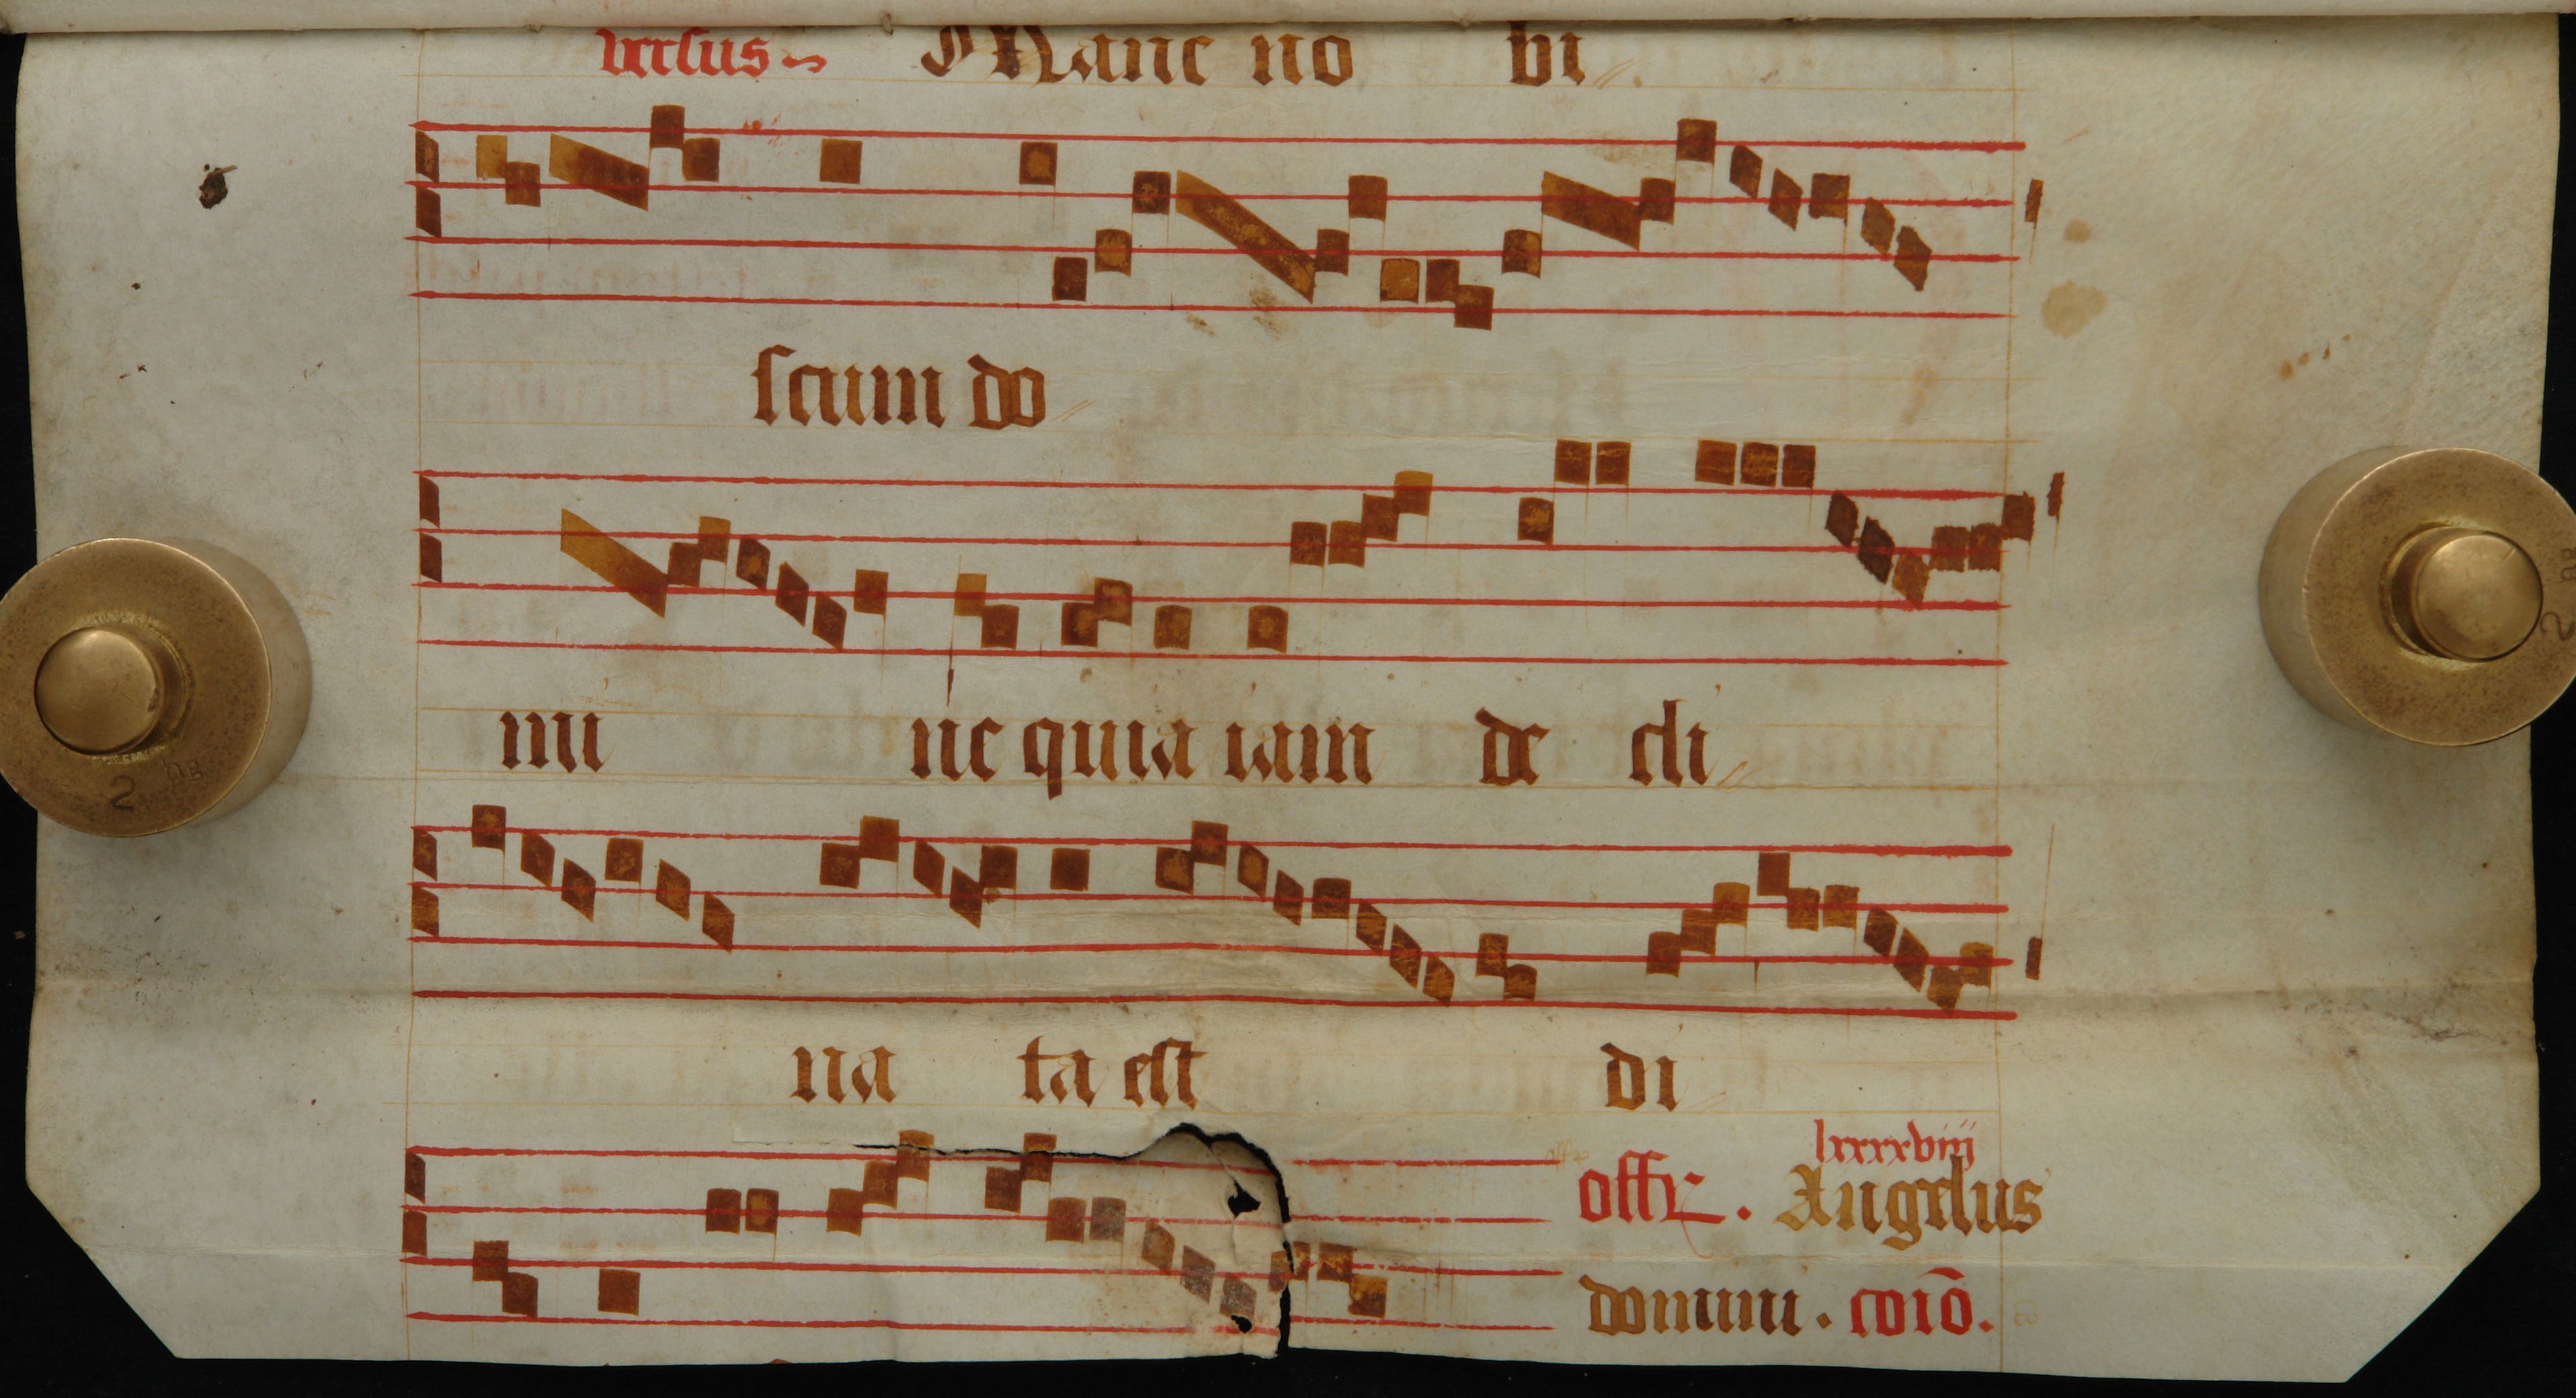 versus Mane no bi
scum do
mi ne quia iam de cli
na ta est di
lxxxxviij
offr. Angelus
domini. coiō.